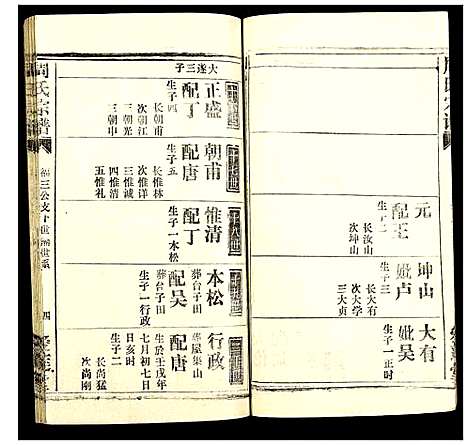 元
配王
生子二
長汝山
次坤山
坤山
妣卢
生子三
長大有
次大学
三大貞
大有
妣吴
生子一正时
周氏宗譜
三公支十世
世系
四
大遂三子
正盛
配丁
生子四
次朝江
三朝光
三朝申
朝甫
配唐
生子五
長惟林
次惟洋
三惟诚
四惟清
五惟礼
惟清
配丁
生子一本松
本松
葬台子田
配吴
葬台子田
生子一行政
行政
葬屋集山
配唐
生於壬戌年
七月初七日
日亥时
生子二
長尚猛
次尚刚